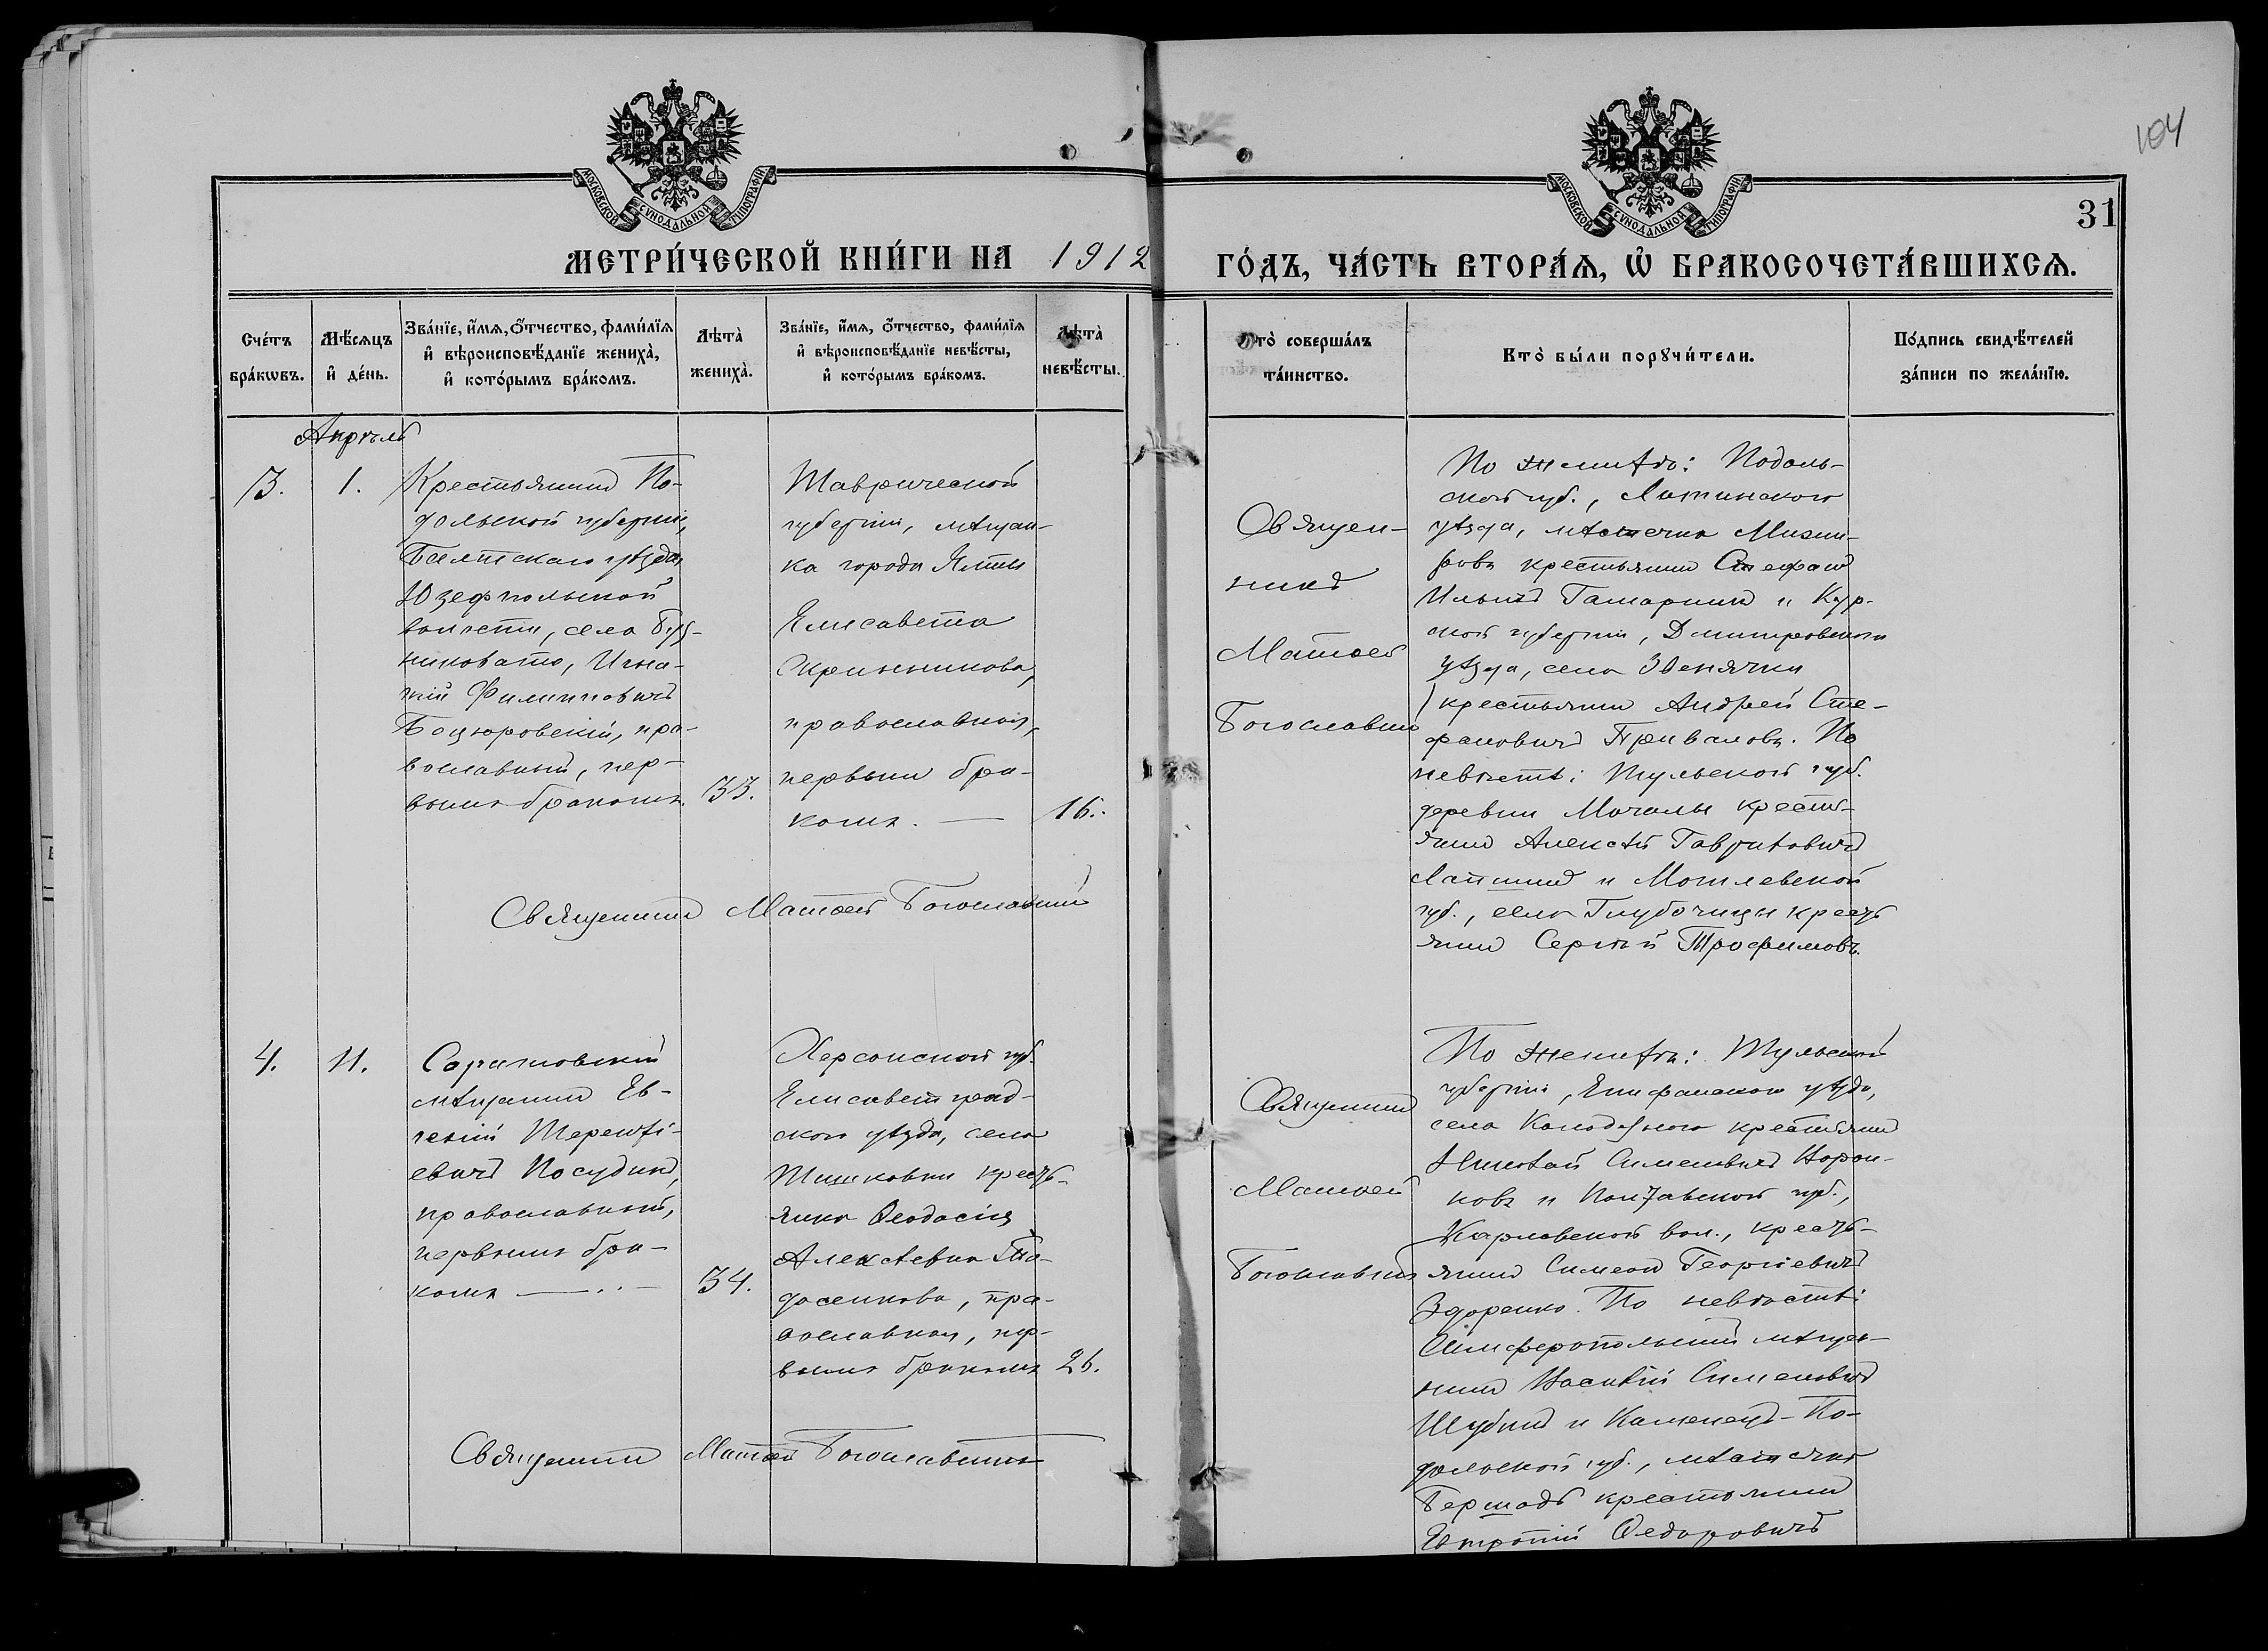 104
31
МОСКОВСКОЙ СѴНОДАЛЬНОЙ ТИПОГРАФІИ
МОСКОВСКОЙ СѴНОДАЛЬНОЙ ТИПОГРАФІИ
МЕТРИ́ЧЕСКОЙ КНИ́ГИ НА 1912 ГО́ДЪ, ЧА́СТЬ ВТОРА́Ѧ, Ѡ҆ БРАКОСОЧЕТА́ВШИХСѦ.
Сче́тъ бра́кѡвъ.
Мѣ́сѧцъ и҆ де́нь.
Зва́нїе, и҆́мѧ, ѻ҆́тчество, фами́лїѧ
и҆ вѣроисповѣ́данїе жениха̀,
и҆ кото́рымъ бра́комъ.
Лѣта̀ жениха̀.
Зва́нїе, и҆́мѧ, ѻ҆́тчество, фами́лїѧ
и҆ вѣроисповѣ́данїе невѣ́сты,
и҆ кото́рымъ бра́комъ.
Лѣта̀ невѣ́сты.
Кто̀ соверша́лъ та́инство.
Кто̀ бы́ли порꙋчи́тели.
По́дпись свидѣ́телей за́писи по жела́нїю.
Апрѣль
3.
1.
Крестьянинъ По-
дольской губерніи,
Балтскаго уѣзда,
Юзефпольской
волости, села
Игна-
тій Филипповичъ
пра-
вославный, пер-
вымъ бракомъ.
33.
Таврической
губерніи, мѣщан-
ка города Ялты
Елисавета
Скрынникова,
православная,
первымъ бра-
комъ. —
16.
Священникъ Матѳей Богославскій
Священ-
никъ
Матѳей
Богославскій
По женихѣ: Подоль-
ской губ., Литинского
уѣзда, мѣстечка
крестьянинъ Стефанъ
Ильичъ и Кур-
ской губерніи, Дмитровского
уѣзда, села Звенячки
крестьянинъ Андрей Сте-
фановичъ Приваловъ. По
невѣстѣ: Тульской губ.
деревни Мочалы кресть-
янинъ Алексѣй Гавриловичъ
Лапшинъ и Могилевской
губ., села Глубочицы кресть
янинъ Сергѣй Трофимовъ.
4.
11.
Саратовскій
мѣщанинъ Ев-
геній Теренті-
евичъ Посудинъ,
православный,
первымъ бра-
комъ —
34.
Херсонской губ.
Елисаветград-
ского уѣзда, села
Тишковки кресть-
янка Ѳеодосія
Алексѣевна
пра-
вославная, пер-
вымъ бракомъ
26.
Священникъ Матѳей Богославскій
Священникъ
Матѳей
Богославскій
По женихѣ: Тульской
губерніи, Епифанского уѣзда,
села Колодезного крестьянинъ
Николай Симеоновичъ Ворон-
ковъ и Полтавской губ.,
Карловской вол., кресть-
янинъ Симеонъ Георгіевичъ
Здоренко. По невѣстѣ:
Симферопольскій мѣща-
нинъ Василій Симеоновичъ
Шубинъ и Каменецъ-По-
дольской губ., мѣстечка
Бершадь крестьянинъ
Евтропій Ѳедоровичъ